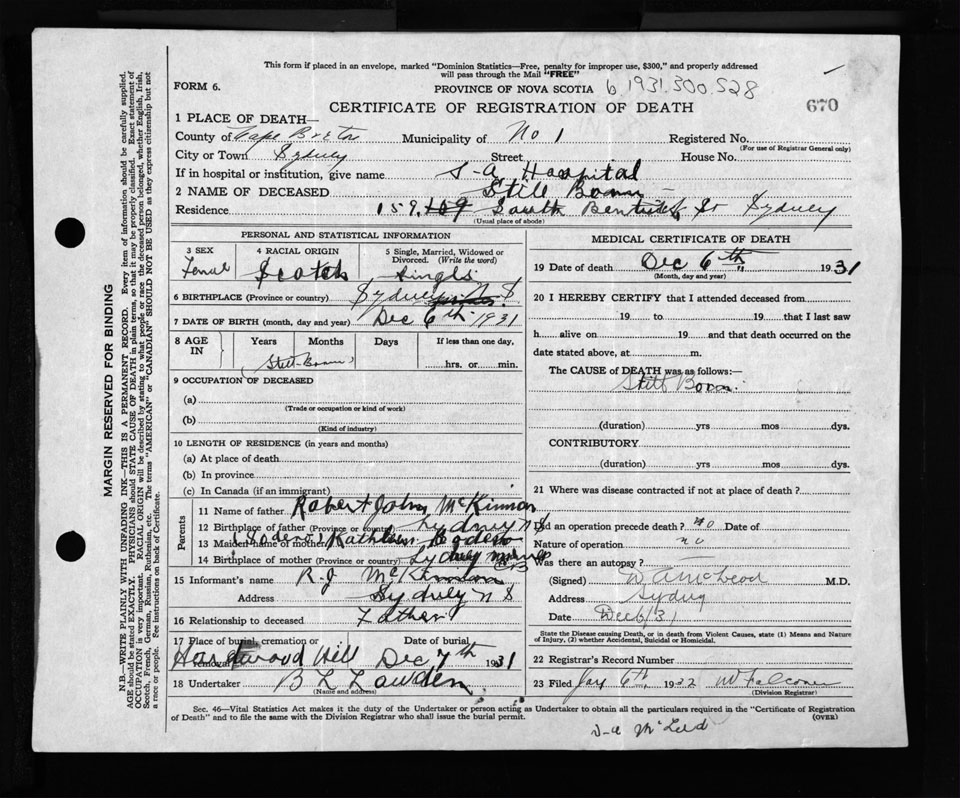 This form if placed in an envelope, marked "Dominion Statistics—Free, penalty for improper use, $300," and properly addressed
will pass through the Mail "FREE"
FORM 6.
PROVINCE OF NOVA SCOTIA 6 1931.300.528
670
CERTIFICATE OF REGISTRATION OF DEATH
1 PLACE OF DEATH—
County of Cape Breton Municipality of No 1 Registered No.
(For use of Registrar General only)
City or Town Sydney Street House No.
If in hospital or institution, give name S-A Hospital
2 NAME OF DECEASED Still Born
Residence 159 109 South Bentick St Sydney
(Usual place of abode)
PERSONAL AND STATISTICAL INFORMATION
3 SEX 4 RACIAL ORIGIN 5 Single, Married, Widowed or
Divorced. (Write the word)
Femal Scotch Single
6 BIRTHPLACE (Province or country) Sydney N S
7 DATE OF BIRTH (month, day and year) Dec 6th 1931
8 AGE IN Years Months Days If less than one day,
Still-Born hrs. or min.
9 OCCUPATION OF DECEASED
(a)
(Trade or occupation or kind of work)
(b)
(Kind of industry)
10 LENGTH OF RESIDENCE (in years and months)
(a) At place of death
(b) In province
(c) In Canada (if an immigrant)
Parents
11 Name of father Robert John McKinnon
12 Birthplace of father (Province or country) Sydney N S
13 Maiden name of mother Kathleen
14 Birthplace of mother (Province or country) Sydney
15 Informant's name R.J McKinnon
Address Sydney N S
16 Relationship to deceased Father
17 Place of burial, cremation or removal Date of burial
Hardwood Hill Dec 7th 1931
18 Undertaker B L Lowden
(Name and address)
MEDICAL CERTIFICATE OF DEATH
19 Date of death Dec 6th 1931
(Month, day and year)
20 I HEREBY CERTIFY that I attended deceased from
19 to 19 that I last saw
h alive on 19 and that death occurred on the
date stated above, at m.
The CAUSE of DEATH was as follows:—
Still Born
(duration) yrs mos dys.
CONTRIBUTORY
(duration) yrs. mos. dys.
21 Where was disease contracted if not at place of death?
Did an operation precede death? no Date of
Nature of operation no
Was there an autopsy?
(Signed) W A McLeod M.D.
Address Sydney
Date Dec 6/31
State the Disease causing Death, or in death from Violent Causes, state (1) Means and Nature
of Injury, (2) whether Accidental, Suicidal or Homicidal.
22 Registrar's Record Number
23 Filed Jay 6th 1932 W Falconer
(Division Registrar)
Sec. 46—Vital Statistics Act makes it the duty of the Undertaker or person acting as Undertaker to obtain all the particulars required in the "Certificate of Registration
of Death" and to file the same with the Division Registrar who shall issue the burial permit.
(OVER)
MARGIN RESERVED FOR BINDING
N.B.—WRITE PLAINLY WITH UNFADING INK—THIS IS A PERMANENT RECORD. Every item of information should be carefully supplied.
AGE should be stated EXACTLY. PHYSICIANS should STATE CAUSE OF DEATH in plain terms, so that it may be properly classified. Exact statement of
OCCUPATION is very important. RACIAL ORIGIN will be described by stating to what people or race the deceased person belonged, whether English, Irish,
Scotch, French, German, Russian, Ruthenian, etc. The terms "AMERICAN" or "CANADIAN" SHOULD NOT BE USED as they express citizenship but not
a race or people. See instructions on back of Certificate.